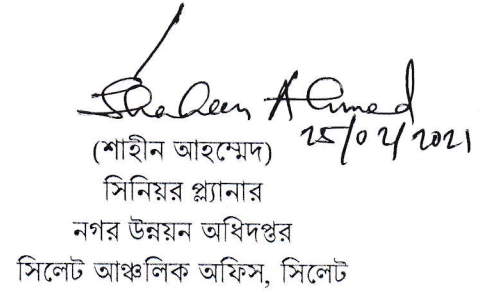 Shaheen Ahmed
25/02/2021
(শাহীন আহম্মেদ)
সিনিয়র প্ল্যানার
নগর উন্নয়ন অধিদপ্তর
সিলেট আঞ্চলিক অফিস, সিলেট